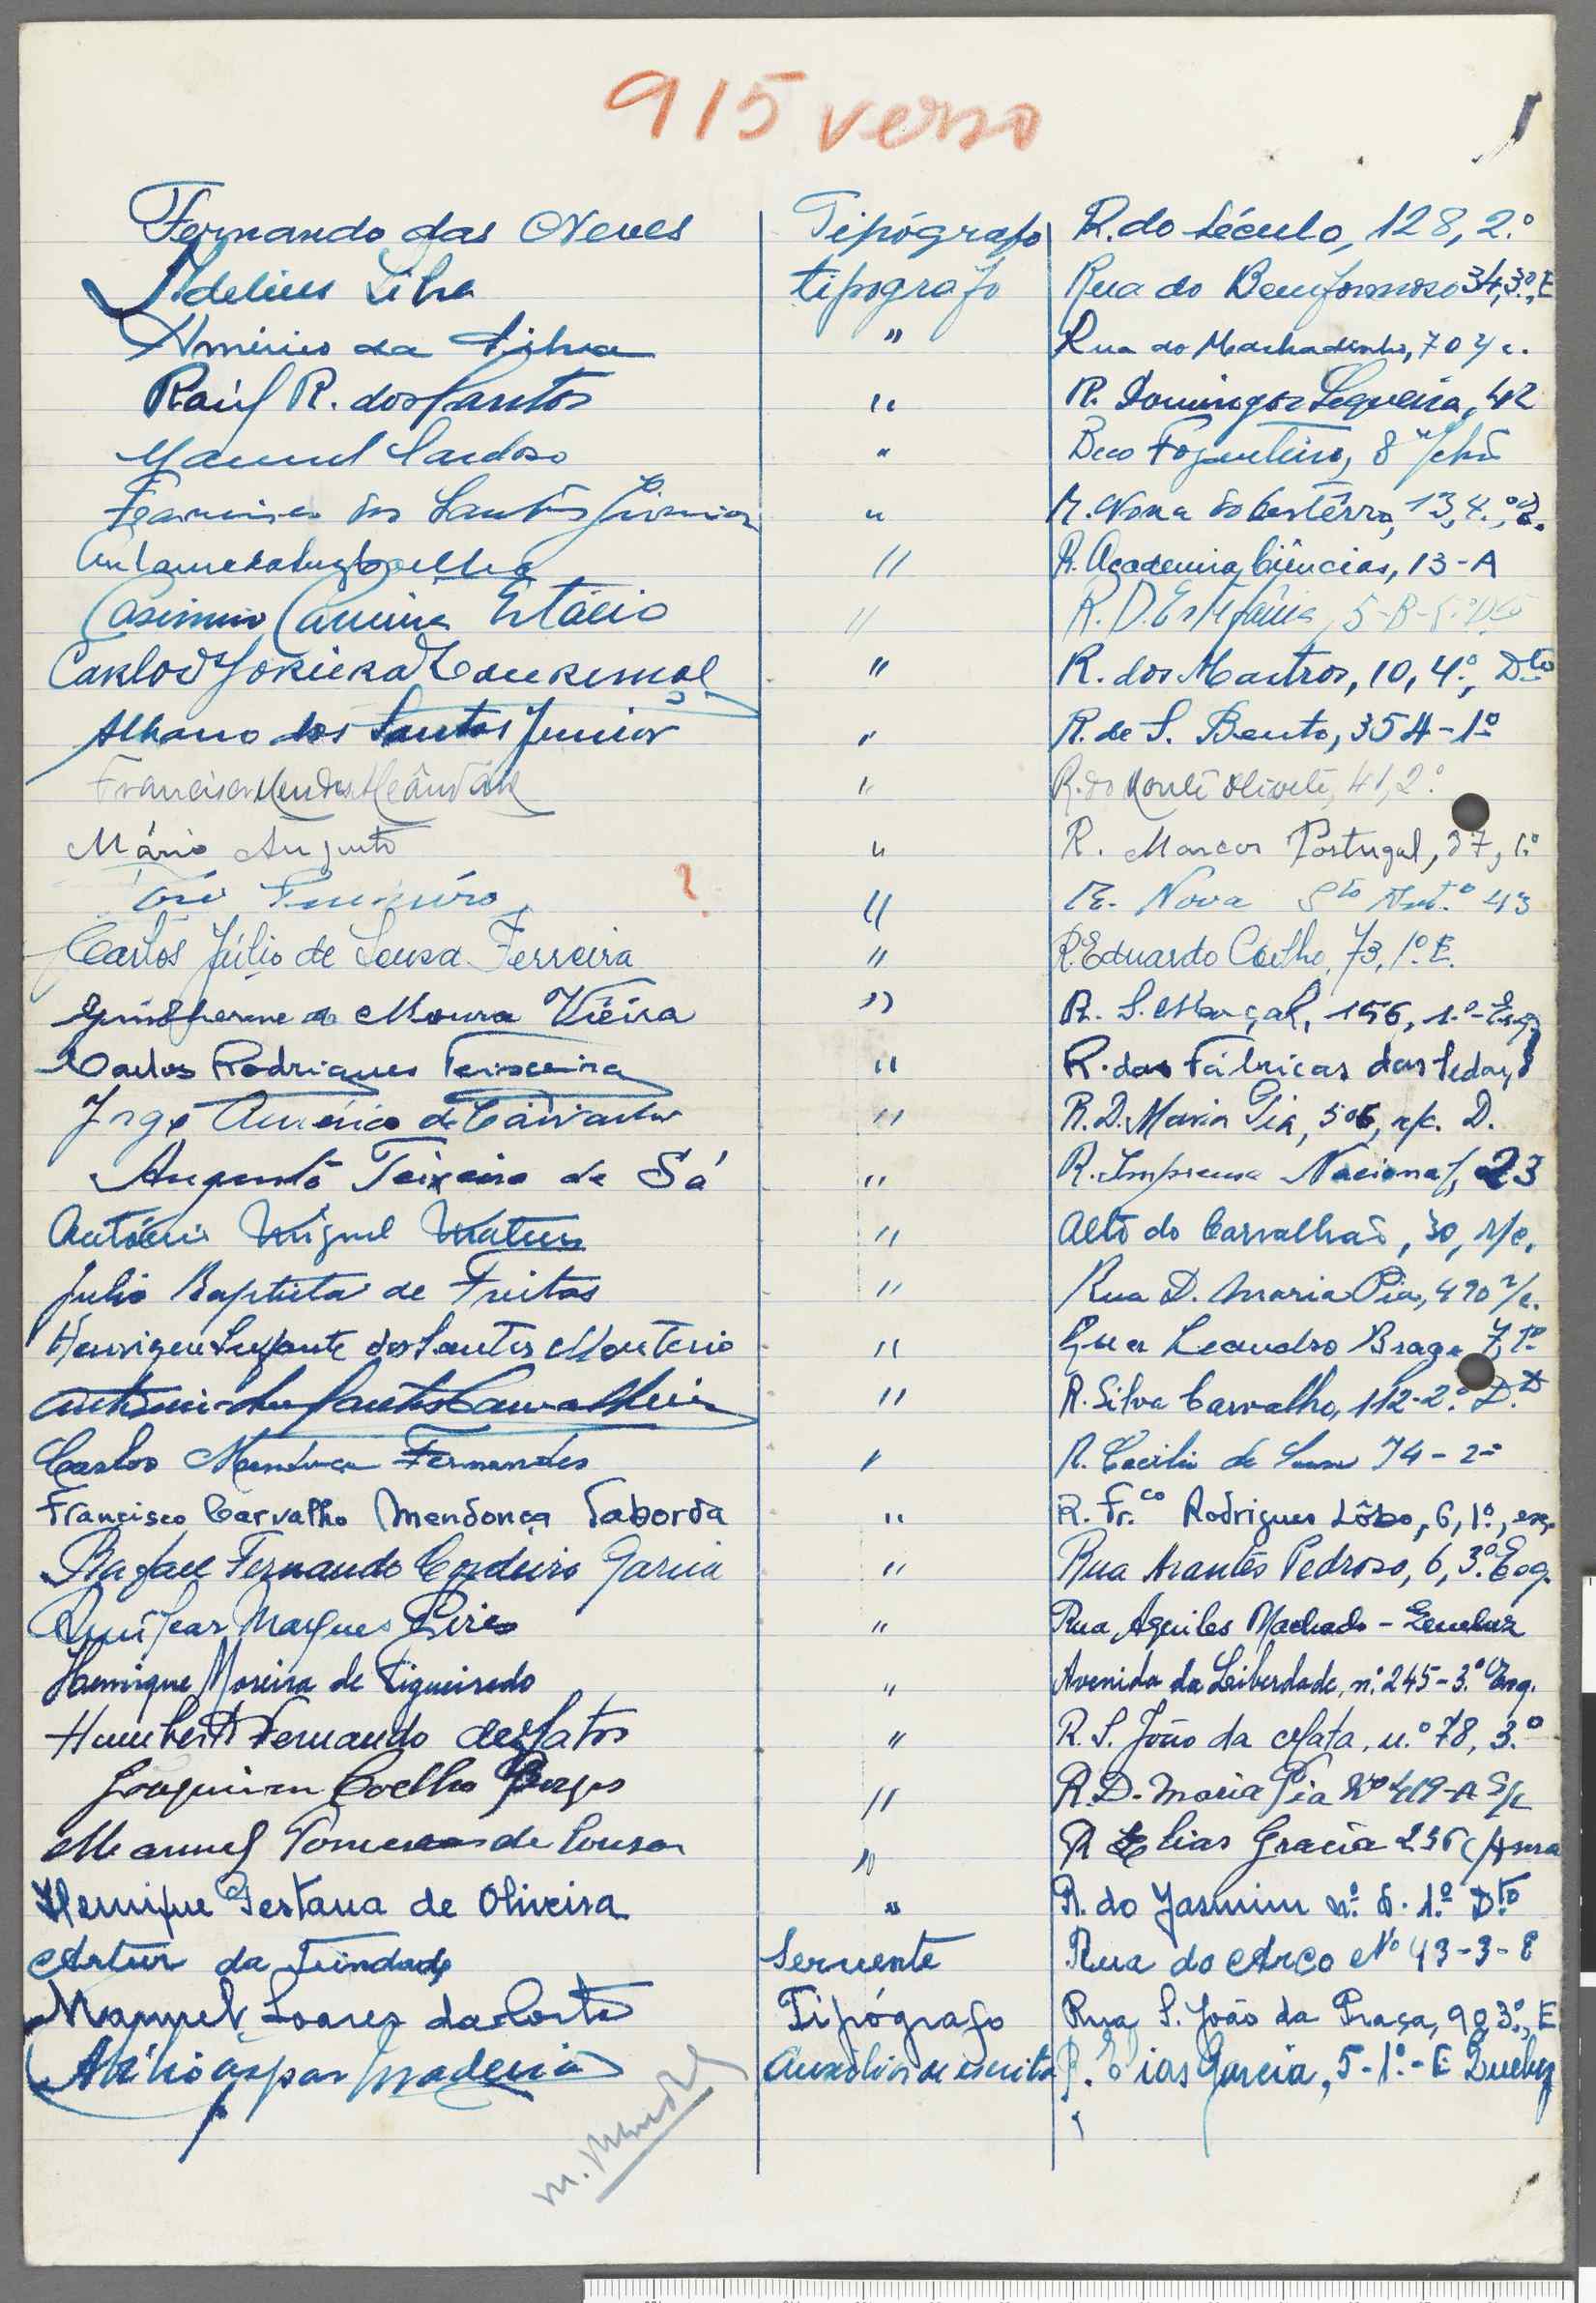 915 verso
Fernando das Neves Tipógrafo R. do Século, 128, 2.º
Adelino Silva tipografo Rua do Bemformoso 34, 3.º, E
Américo da Silva " Rua do Machadinho, 70 r/c.
Raúl R. dos Santos " R. Domingos Sequeira, 42
Manuel Cardoso " Beco Fogueteiro, 8
Francisco dos Santos Junior " R. Nova do Destêrro, 13, 4.º
" R. Academia Ciências, 13-A
Casimiro Estácio " R. D. Estefânia, 5-B-5.º Dto
Carlos " R. dos Mastros, 10, 4.º, Dto
Albano dos Santos Junior " R. de S. Bento, 354-1º
Francisco Mendes " R. do Monte Olivete, 41, 2.º
Mário Augusto " R. Marcos Portugal, 37, 1.º
José ? " R. Nova Sto Ant.º 43
Carlos Júlio de Sousa Ferreira " R. Eduardo Coelho, 73, 1.º E.
Guilherme de Moura Vieira " R. S. Marçal, 156, 1.º-Esq
Carlos Rodrigues Teixeira " R. das Fábricas das Sedas,
Jorge Américo de Carvalho " R. D. Maria Pia, 506, r/c. D.
Augusto Teixeira de Sá " R. Imprensa Nacional, 23
António Miguel Mateus " Alto do Carvalhão, 30, r/c.
Julio Baptista de Freitas " Rua D. Maria Pia, 490 r/c.
Henrique dos Santos Monteiro " Rua Leandro Braga 7, 1º
António dos Santos Carvalheiro " R. Silva Carvalho, 112-2.º D.to
Carlos Mendonça Fernandes " R. Cecilio de Sousa 74-2º
Francisco Carvalho Mendonça Taborda " R. Fr.co Rodrigues Lôbo, 6, 1.º, esq.
Rafael Fernando Cordeiro Garcia " Rua Arantes Pedroso, 6, 3.º Esq.
Amílcar Marques Pires " Rua Aquiles Machado -
Henrique Moreira de Figueiredo " Avenida da Liberdade, n.º 245-3.º Esq.
Humberto Fernando de Matos " R. S. João da Mata, n.º 78, 3.º
Joaquim Coelho Borges " R. D. Maria Pia Nº 419-A r/c
Manuel de Sousa " R Elias Gracia 236 c/
Henrique Pestana de Oliveira " R. do Jasmim n.º 8. 1.º Dto
Artur da Trindade Servente Rua do Arco Nº 43-3-E
Manuel Soares da Costa Tipógrafo Rua S. João da Praça, 90, 3.º, E
Madeira Auxiliar de escrita R. Elias Garcia, 5-1.º-E Queluz